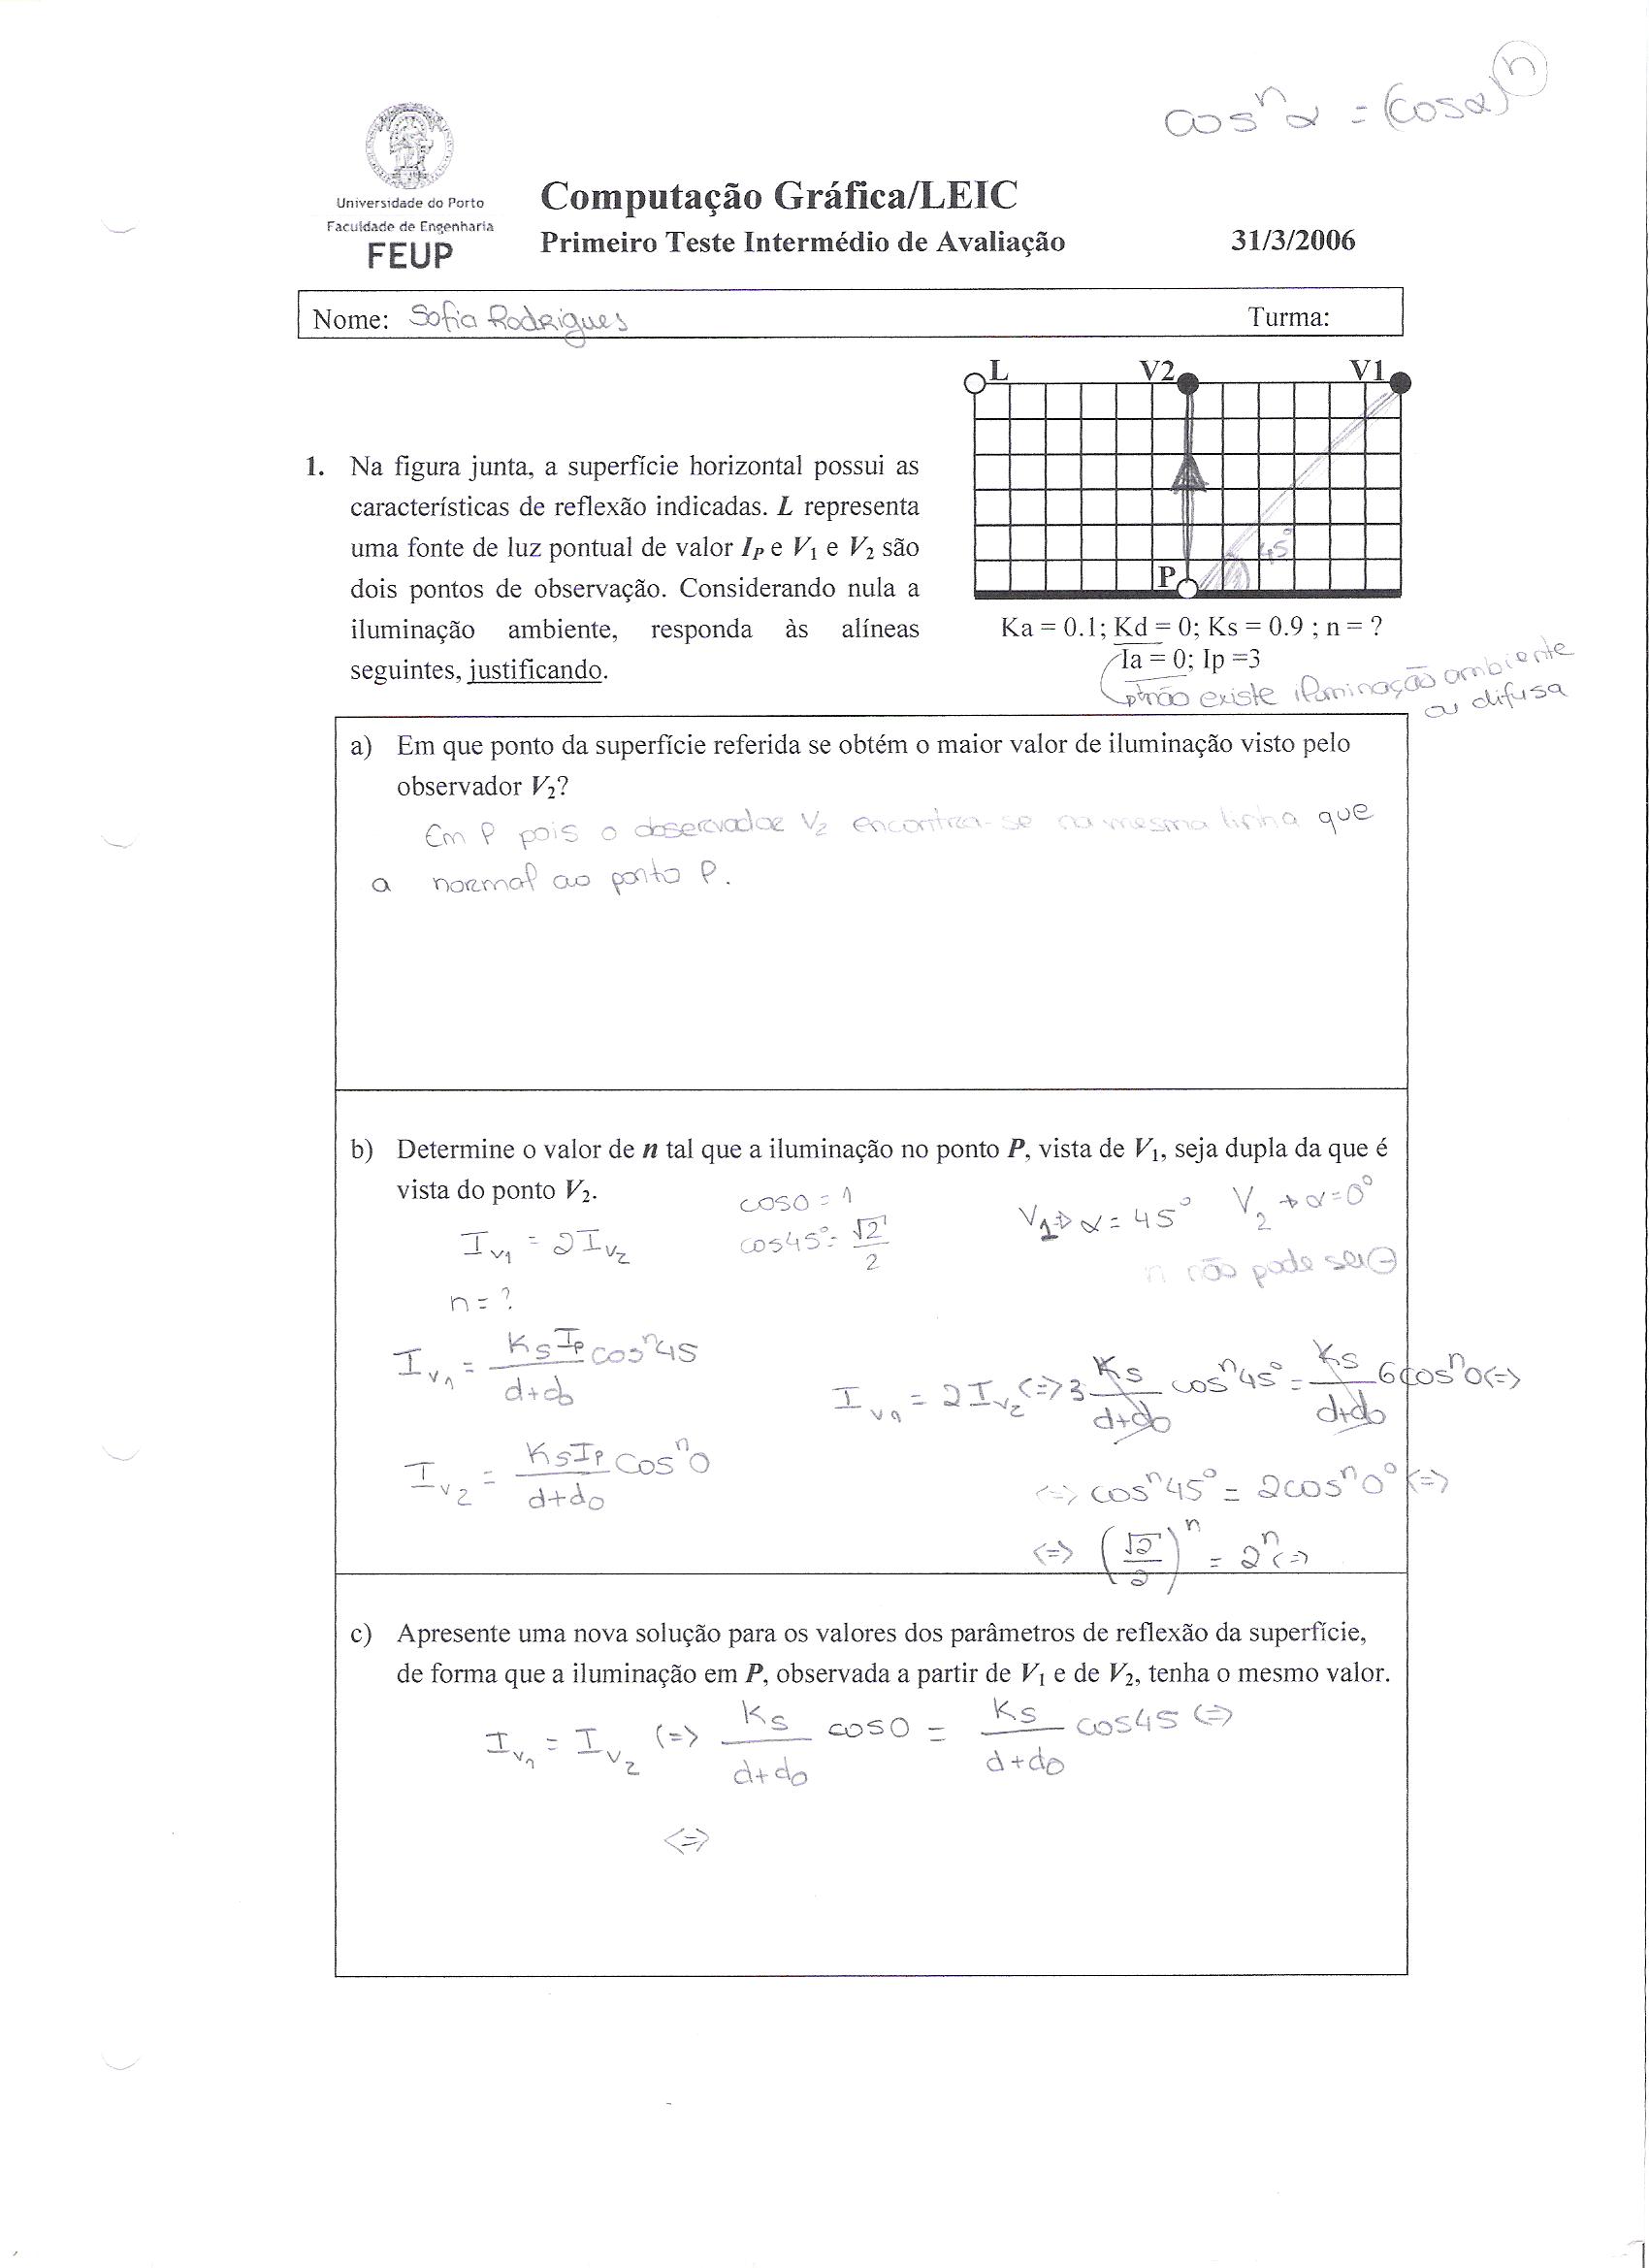 cosⁿα = (cosα)ⁿ
Universidade do Porto
Faculdade de Engenharia
FEUP
Computação Gráfica/LEIC
Primeiro Teste Intermédio de Avaliação
31/3/2006
Nome: Sofia Rodrigues
Turma:
L
V2
V1
45°
P
1. Na figura junta, a superfície horizontal possui as
características de reflexão indicadas. L representa
uma fonte de luz pontual de valor I_P e V₁ e V₂ são
dois pontos de observação. Considerando nula a
iluminação ambiente, responda às alíneas
seguintes, justificando.
Ka = 0.1; Kd = 0; Ks = 0.9 ; n = ?
Ia = 0; Ip =3
não existe iluminação ambiente
ou difusa
a) Em que ponto da superfície referida se obtém o maior valor de iluminação visto pelo
observador V₂?
Em P pois o observador V₂ encontra-se na mesma linha que
a normal ao ponto P.
b) Determine o valor de n tal que a iluminação no ponto P, vista de V₁, seja dupla da que é
vista do ponto V₂.
cos0 = 1
V₁→ α = 45° V₂ → α=0°
I_v₁ = 2I_v₂
cos45° = √2/2
n não pode ser ⊖
n = ?
I_v₁ = KsIp/(d+d0) cosⁿ45
I_v₁ = 2I_v₂ <=> 3 Ks/(d+d0) cosⁿ45° = Ks/(d+d0) 6cosⁿ0 <=>
I_v₂ = KsIp/(d+d0) cosⁿ0
<=> cosⁿ45° = 2cosⁿ0° <=>
<=> (√2/2)ⁿ = 2ⁿ <=>
c) Apresente uma nova solução para os valores dos parâmetros de reflexão da superfície,
de forma que a iluminação em P, observada a partir de V₁ e de V₂, tenha o mesmo valor.
I_v₁ = I_v₂ <=> Ks/(d+d0) cos0 = Ks/(d+d0) cos45 <=>
<=>